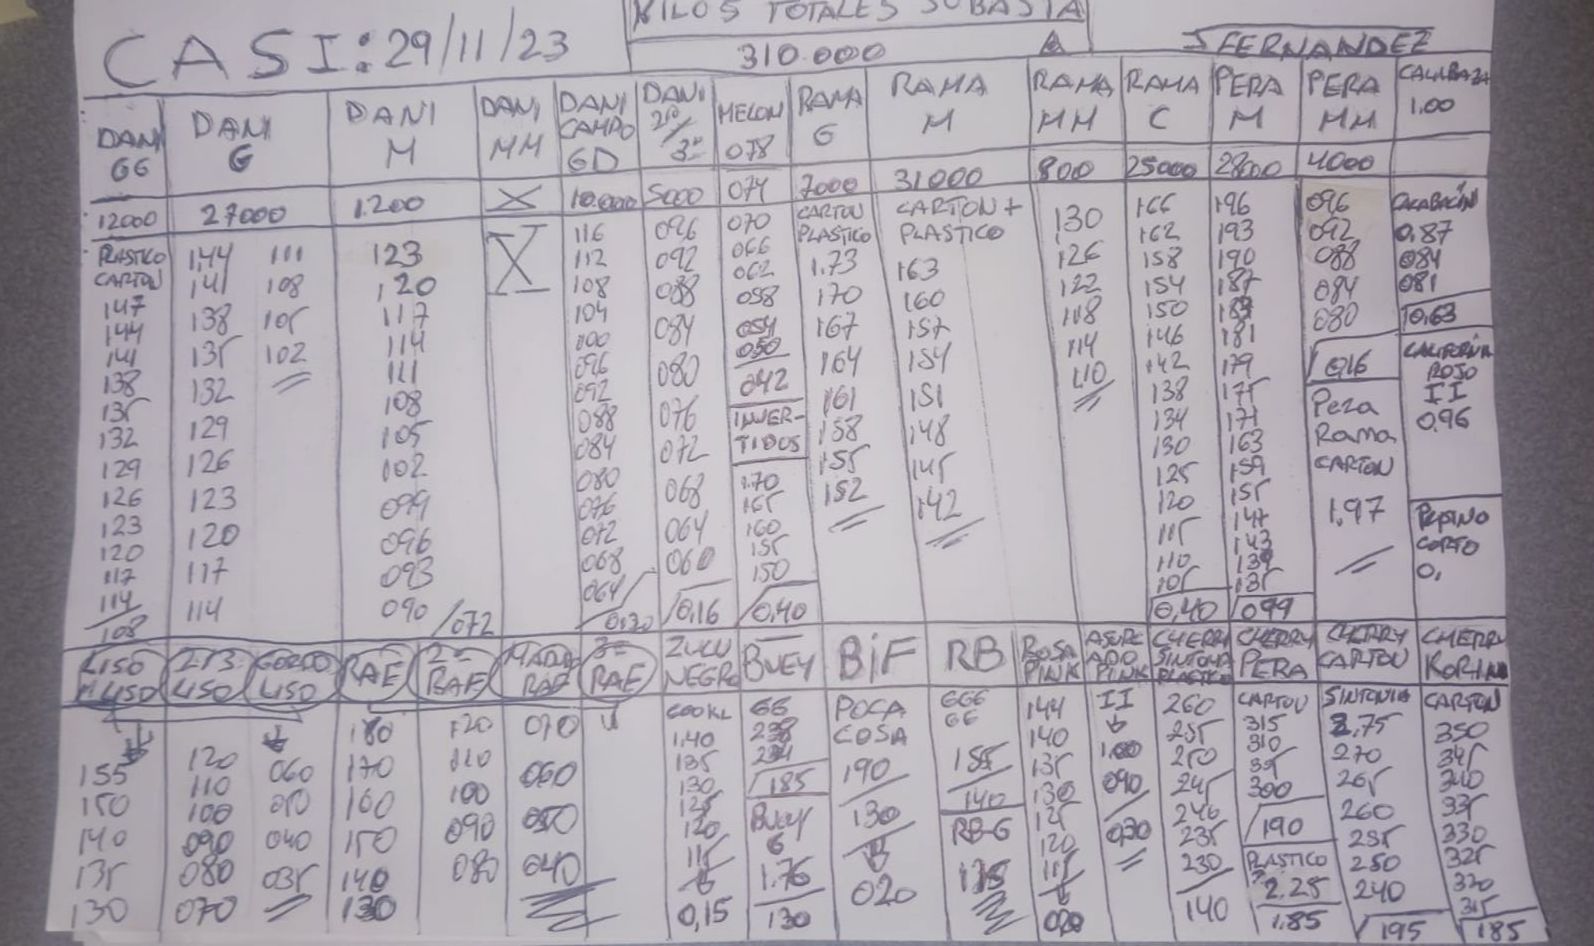 KILOS TOTALES SUBASTA
CASI: 29/11/23
310.000
JFERNANDEZ
DANI GG
12000
PLASTICO
CARTON
147
144
141
138
135
132
129
126
123
120
117
114
108
DANI G
27000
1,44 111
141 108
138 105
135 102
132
129
126
123
120
117
114
DANI M
1.200
123
120
117
114
111
108
105
102
099
096
093
090 /072
DANI MM
X
X
DANI CAMPO GD
10.000
116
112
108
104
100
096
092
088
084
080
076
072
068
064
0,30
DANI 2ª/3ª
5000
096
092
088
084
080
076
072
068
064
060
0,16
MELON
078
074
070
066
062
058
054
050
042
INVER-
TIDOS
1.70
165
160
155
150
0,40
RAMA G
7000
CARTON
PLASTICO
1.73
170
167
164
161
158
155
152
RAMA M
31000
CARTON +
PLASTICO
163
160
157
154
151
148
145
142
RAMA MM
800
130
126
122
118
114
110
RAMA C
25000
166
162
158
154
150
146
142
138
134
130
125
120
115
110
105
0,40
PERA M
28000
196
193
190
187
181
179
175
171
163
159
155
147
143
139
135
099
PERA MM
4000
096
092
088
084
080
0,16
Pera
Rama
CARTON
1,97
CALABAZA
1.00
CALABACÍN
0,87
084
081
0,63
CALIFORNIA
ROJO
II
0,96
PEPINO
CORTO
0,
LISO
M LISO
155
150
140
135
130
2ª/3ª
LISO
120
110
100
090
080
070
GORDO
LISO
060
050
040
035
RAF
180
170
160
150
140
130
2ª
RAF
120
110
100
090
080
MADU
RAF
070
060
050
040
3ª
RAF
ZULU
NEGRO
600KL
1,40
135
130
125
120
115
0,15
BUEY
GG
238
234
185
Buey
G
1.76
130
BIF
POCA
COSA
190
130
020
RB
GGG
GG
155
140
RB-G
135
ROSA
PINK
144
140
135
130
125
120
115
020
ASURC
ADO
PINK
II
1.00
090
0,30
CHERRY
SINTONIA
PLASTICO
260
255
250
245
240
235
230
140
CHERRY
PERA
CARTON
315
310
300
190
PLASTICO
2.25
1.85
CHERRY
CARTON
SINTONIA
2,75
270
265
260
255
250
240
195
CHERRY
KORINA
CARTON
350
345
340
335
330
325
320
315
185